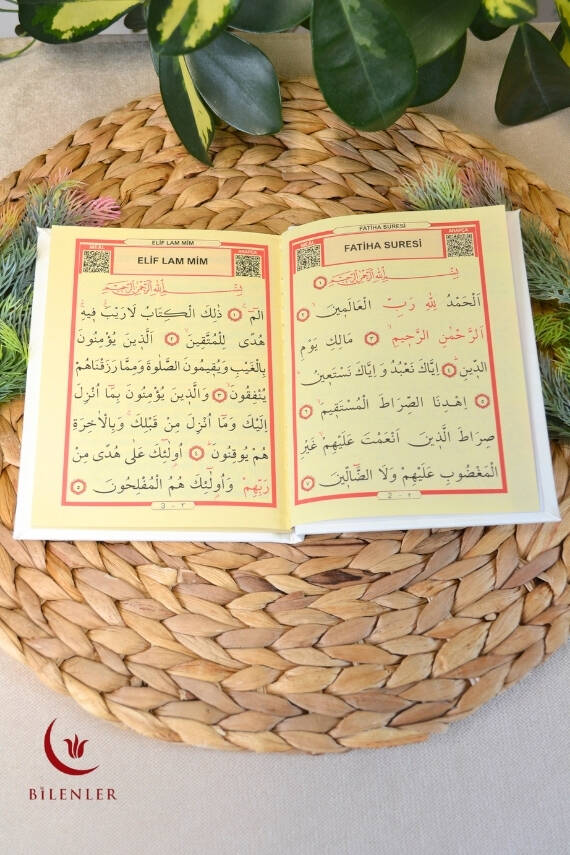 FATİHA SURESİ
MEALİ
ARAPÇA
FATİHA SURESİ
بِسْــــمِ اللّٰهِ الرَّحْمٰنِ الرَّح۪يمِ ١
اَلْحَمْدُ لِلّٰهِ رَبِّ الْعَالَم۪ينَۙ ٢
اَلرَّحْمٰنِ الرَّح۪يمِۙ ٣ مَالِكِ يَوْمِ
الدّ۪ينِۜ ٤ اِيَّاكَ نَعْبُدُ وَ اِيَّاكَ نَسْتَع۪ينُۜ
٥ اِهْدِنَا الصِّرَاطَ الْمُسْتَق۪يمَۙ ٦
صِرَاطَ الَّذ۪ينَ اَنْعَمْتَ عَلَيْهِمْۙ غَيْرِ
الْمَغْضُوبِ عَلَيْهِمْ وَلَا الضَّٓالّ۪ينَ ٧
2 - ٢
ELİF LAM MİM
MEALİ
ARAPÇA
ELİF LAM MİM
بِسْــــمِ اللّٰهِ الرَّحْمٰنِ الرَّح۪يمِ
الٓمٓۜ ١ ذٰلِكَ الْكِتَابُ لَا رَيْبَۚ ف۪يهِۚ
هُدًى لِلْمُتَّق۪ينَۙ ٢ اَلَّذ۪ينَ يُؤْمِنُونَ
بِالْغَيْبِ وَيُق۪يمُونَ الصَّلٰوةَ وَمِمَّا رَزَقْنَاهُمْ
يُنْفِقُونَۙ ٣ وَالَّذ۪ينَ يُؤْمِنُونَ بِمَٓا اُنْزِلَ
اِلَيْكَ وَمَٓا اُنْزِلَ مِنْ قَبْلِكَۚ وَبِالْاٰخِرَةِ
هُمْ يُوقِنُونَۜ ٤ اُو۬لٰٓئِكَ عَلٰى هُدًى مِنْ
رَبِّهِمْ وَاُو۬لٰٓئِكَ هُمُ الْمُفْلِحُونَ ٥
3 - ٣
BİLENLER